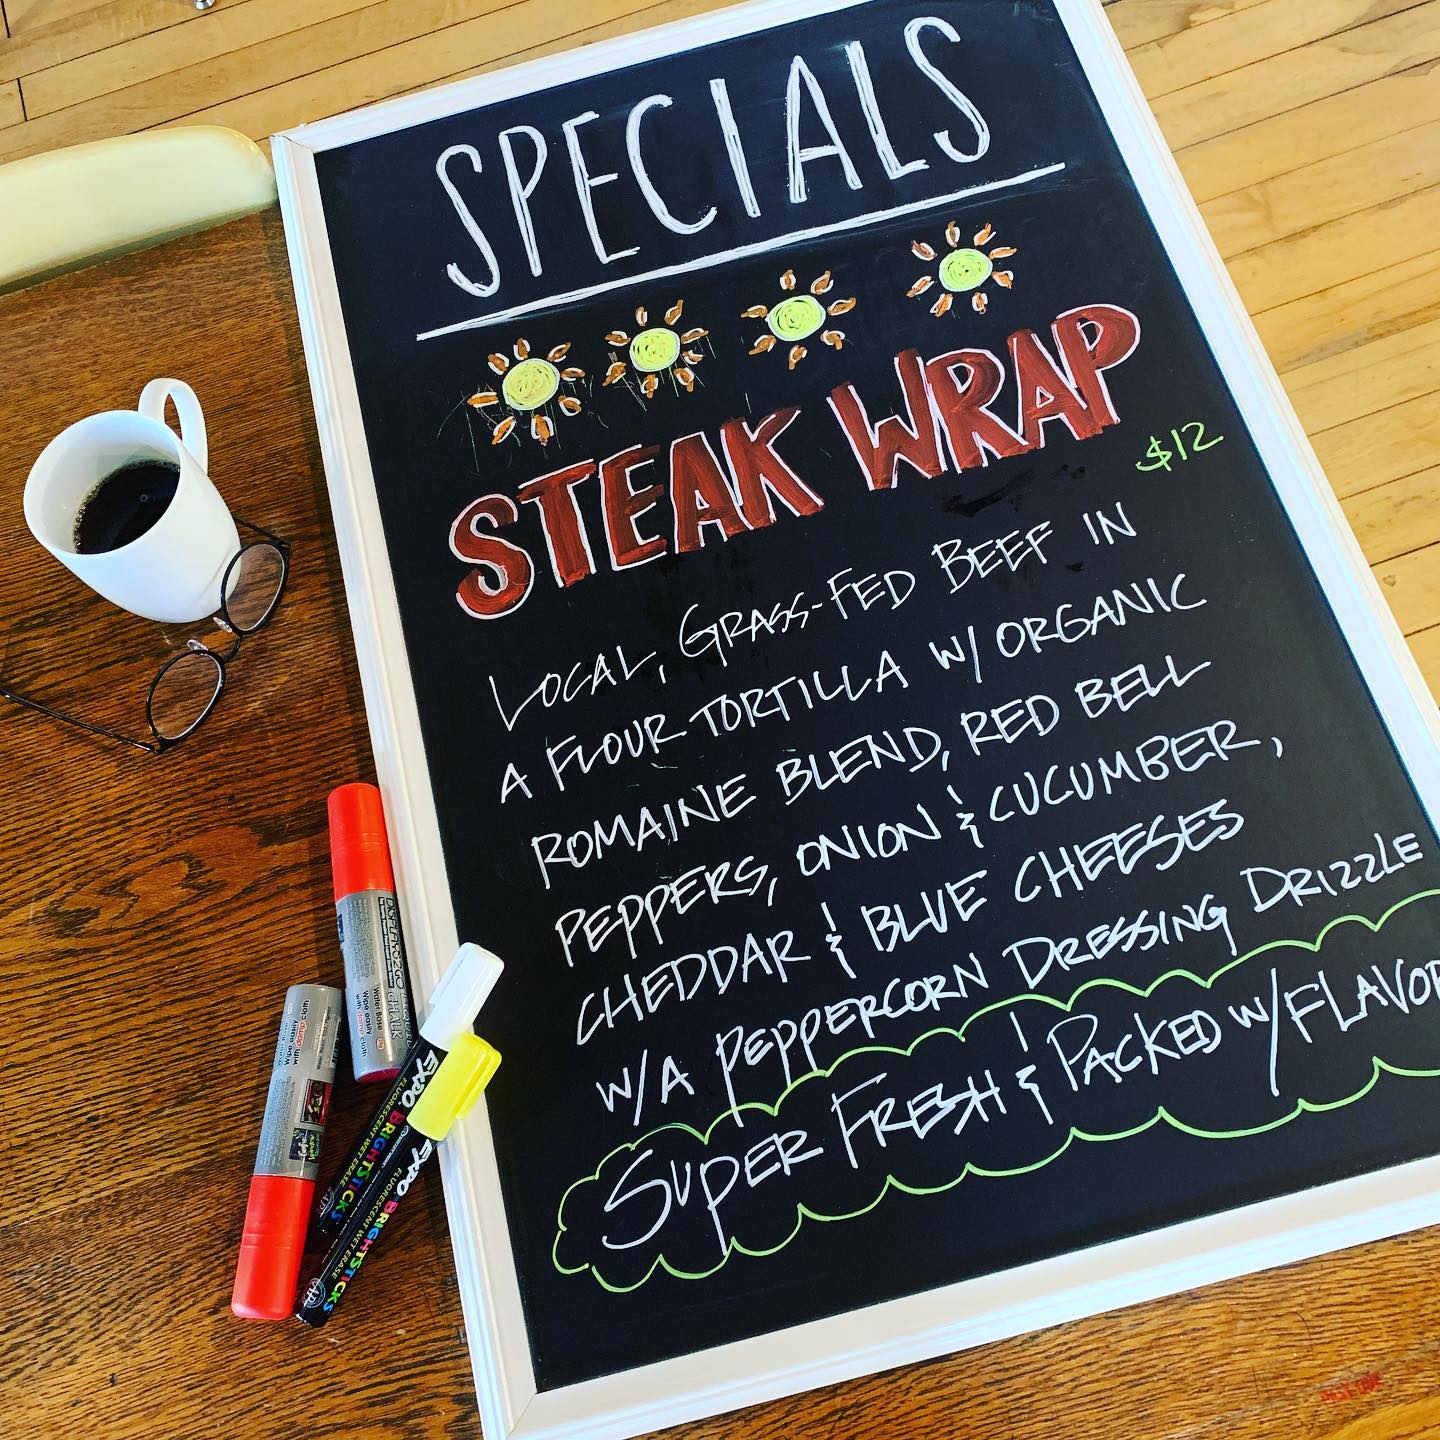 SPECIALS
STEAK WRAP
$12
LOCAL, GRASS-FED BEEF IN
A FLOUR TORTILLA W/ ORGANIC
ROMAINE BLEND, RED BELL
PEPPERS, ONION & CUCUMBER,
CHEDDAR & BLUE CHEESES
W/A PEPPERCORN DRESSING DRIZZLE
SUPER FRESH & PACKED W/FLAVOR
DISPLAY2GO
CHALK
Water Base
Wipe easily
with damp cloth
Wipe easily
with damp cloth
EXPO BRIGHTSTICKS
FLUORESCENT WET ERASE
EXPO BRIGHTSTICKS
FLUORESCENT WET ERASE